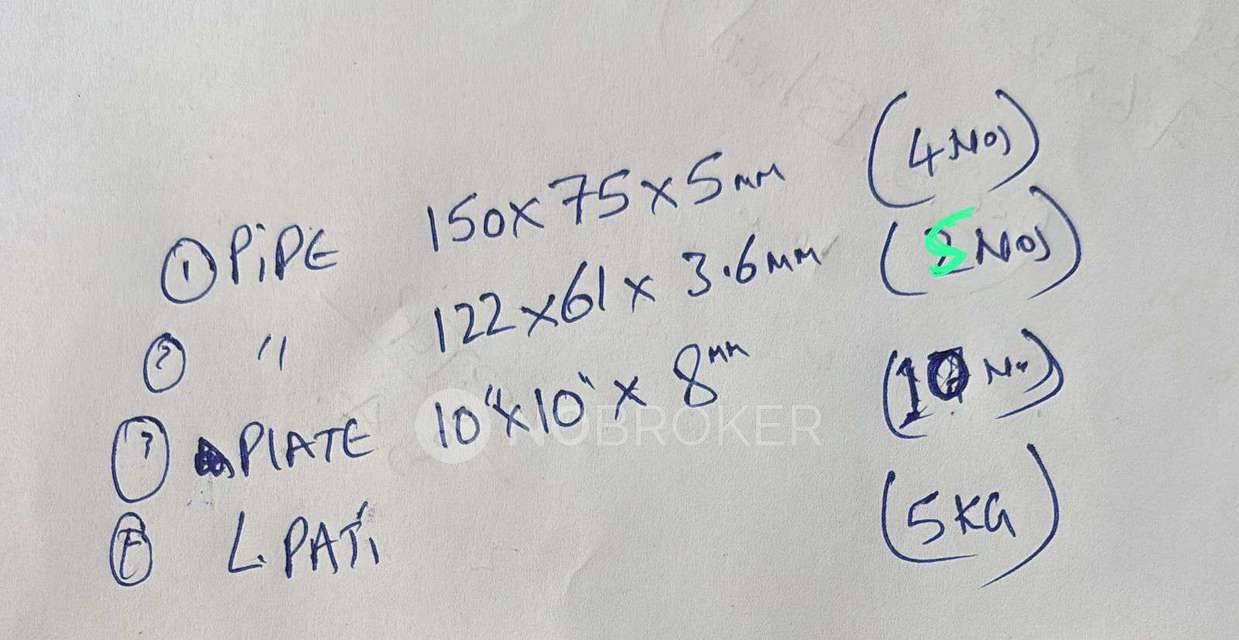 ① PiPE 150x75x5mm (4 Nos)
② " 122x61x3.6mm (5 Nos)
③ PlATE 10"x10"x8mm (10 No)
L. PATi (5 KG)
NOBROKER